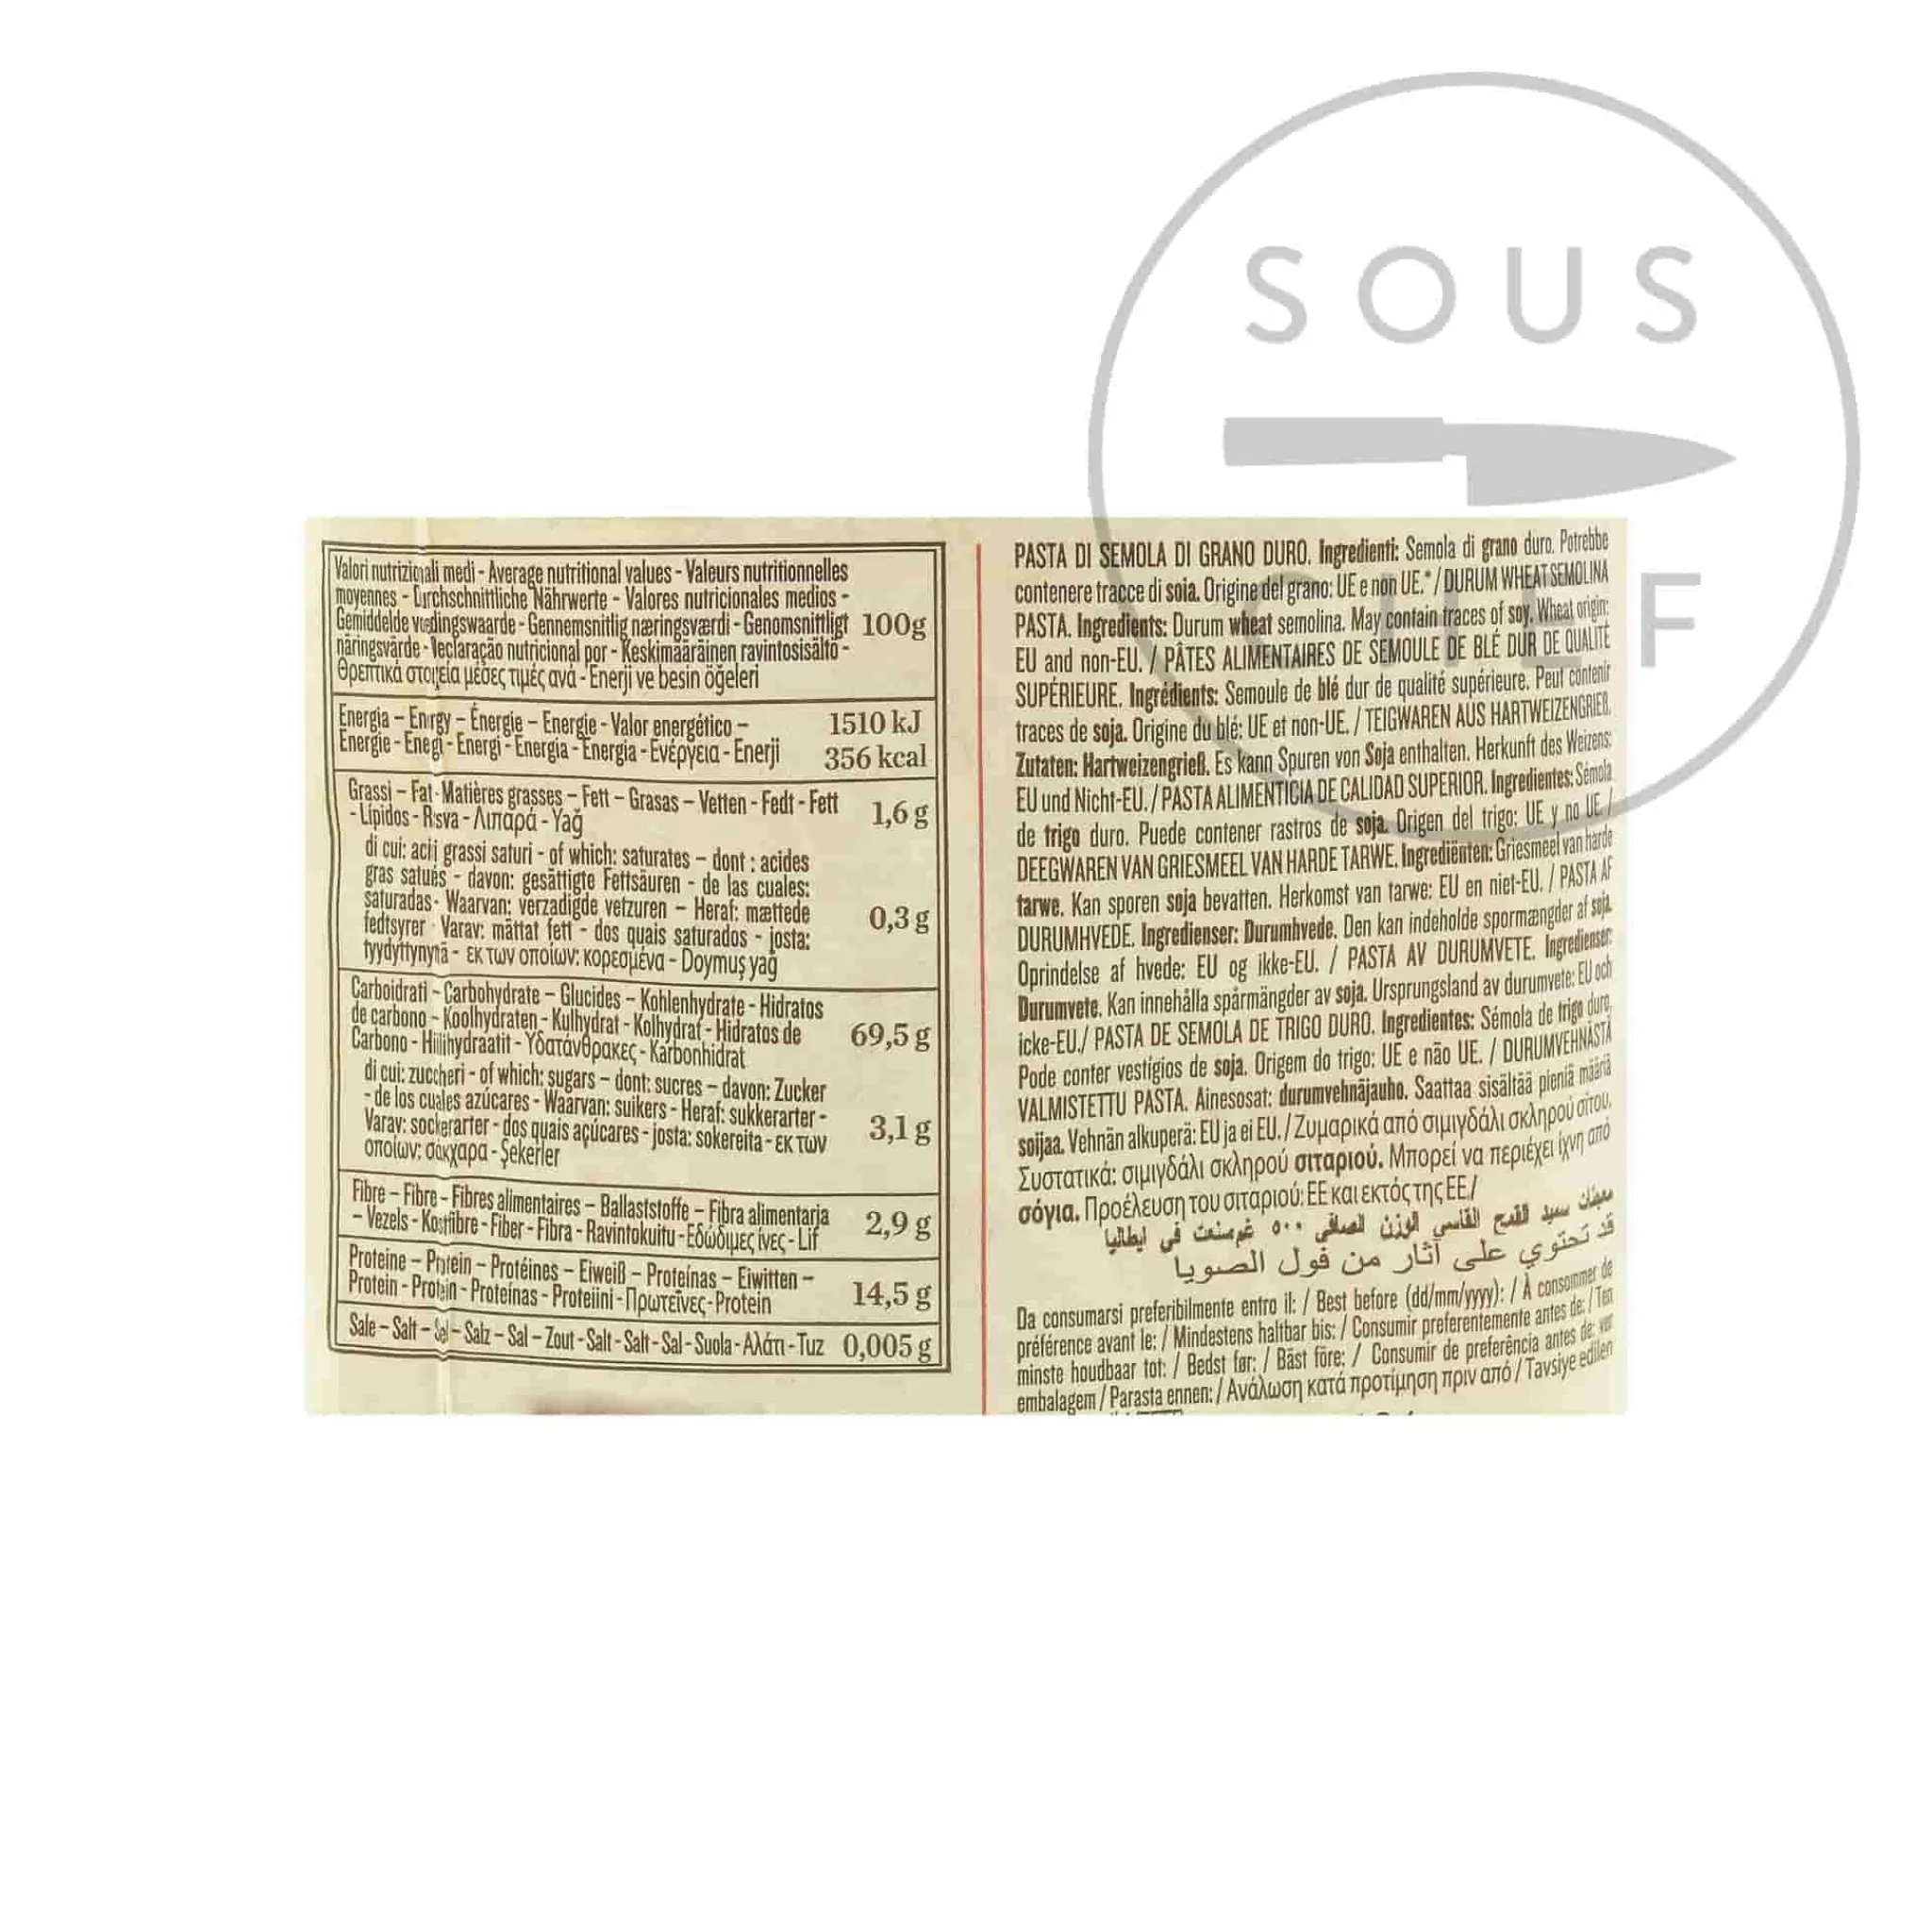 SOUS
CHEF
Valori nutrizionali medi - Average nutritional values - Valeurs nutritionnelles
moyennes - Durchschnittliche Nährwerte - Valores nutricionales medios -
Gemiddelde voedingswaarde - Gennemsnitlig næringsværdi - Genomsnittligt 100g
näringsvärde - Declaração nutricional por - Keskimääräinen ravintosisältö -
Θρεπτικά στοιχεία μέσες τιμές ανά - Enerji ve besin öğeleri
Energia – Energy – Énergie – Energie - Valor energético – 1510 kJ
Energie - Energi - Energi - Energia - Energia - Ενέργεια - Enerji 356 kcal
Grassi – Fat - Matières grasses – Fett – Grasas – Vetten - Fedt - Fett 1,6 g
- Lípidos - Rasva - Λιπαρά - Yağ
di cui: acidi grassi saturi - of which: saturates – dont : acides
gras saturés - davon: gesättigte Fettsäuren - de las cuales:
saturadas - Waarvan: verzadigde vetzuren – Heraf: mættede 0,3 g
fedtsyrer - Varav: mättat fett - dos quais saturados - josta:
tyydyttynyttä - εκ των οποίων: κορεσμένα - Doymuş yağ
Carboidrati – Carbohydrate – Glucides – Kohlenhydrate - Hidratos
de carbono – Koolhydraten - Kulhydrat - Kolhydrat - Hidratos de 69,5 g
Carbono - Hiilihydraatit - Υδατάνθρακες - Karbonhidrat
di cui: zuccheri - of which: sugars – dont: sucres – davon: Zucker
- de los cuales azúcares - Waarvan: suikers - Heraf: sukkerarter - 3,1 g
Varav: sockerarter - dos quais açúcares - josta: sokereita - εκ των
οποίων: σάκχαρα - Şekerler
Fibre – Fibre – Fibres alimentaires – Ballaststoffe – Fibra alimentaria 2,9 g
– Vezels - Kostfibre - Fiber - Fibra - Ravintokuitu - Εδώδιμες ίνες - Lif
Proteine – Protein – Protéines – Eiweiß – Proteínas – Eiwitten – 14,5 g
Protein - Protein - Proteínas - Proteiini - Πρωτεΐνες - Protein
Sale – Salt – Sel – Salz – Sal – Zout - Salt - Salt - Sal - Suola - Αλάτι - Tuz 0,005 g
PASTA DI SEMOLA DI GRANO DURO. Ingredienti: Semola di grano duro. Potrebbe
contenere tracce di soia. Origine del grano: UE e non UE.* / DURUM WHEAT SEMOLINA
PASTA. Ingredients: Durum wheat semolina. May contain traces of soy. Wheat origin:
EU and non-EU. / PÂTES ALIMENTAIRES DE SEMOULE DE BLÉ DUR DE QUALITÉ
SUPÉRIEURE. Ingrédients: Semoule de blé dur de qualité supérieure. Peut contenir
traces de soja. Origine du blé: UE et non-UE. / TEIGWAREN AUS HARTWEIZENGRIEß.
Zutaten: Hartweizengrieß. Es kann Spuren von Soja enthalten. Herkunft des Weizens:
EU und Nicht-EU. / PASTA ALIMENTICIA DE CALIDAD SUPERIOR. Ingredientes: Sémola
de trigo duro. Puede contener rastros de soja. Origen del trigo: UE y no UE. /
DEEGWAREN VAN GRIESMEEL VAN HARDE TARWE. Ingrediënten: Griesmeel van harde
tarwe. Kan sporen soja bevatten. Herkomst van tarwe: EU en niet-EU. / PASTA AF
DURUMHVEDE. Ingredienser: Durumhvede. Den kan indeholde spormængder af soja.
Oprindelse af hvede: EU og ikke-EU. / PASTA AV DURUMVETE. Ingredienser:
Durumvete. Kan innehålla spårmängder av soja. Ursprungsland av durumvete: EU och
icke-EU./ PASTA DE SEMOLA DE TRIGO DURO. Ingredientes: Sémola de trigo duro.
Pode conter vestígios de soja. Origem do trigo: UE e não UE. / DURUMVEHNÄSTÄ
VALMISTETTU PASTA. Ainesosat: durumvehnäjauho. Saattaa sisältää pieniä määriä
soijaa. Vehnän alkuperä: EU ja ei EU. / Ζυμαρικά από σιμιγδάλι σκληρού σίτου.
Συστατικά: σιμιγδάλι σκληρού σιταριού. Μπορεί να περιέχει ίχνη από
σόγια. Προέλευση του σιταριού: ΕΕ και εκτός της ΕΕ./
معينات سميد القمح القاسي الوزن الصافي ٥٠٠ غم صنعت في ايطاليا
قد تحتوي على آثار من فول الصويا
Da consumarsi preferibilmente entro il: / Best before (dd/mm/yyyy): / À consommer de
préférence avant le: / Mindestens haltbar bis: / Consumir preferentemente antes de: / Ten
minste houdbaar tot: / Bedst før: / Bäst före: / Consumir de preferência antes de: ver
embalagem / Parasta ennen: / Ανάλωση κατά προτίμηση πριν από / Tavsiye edilen